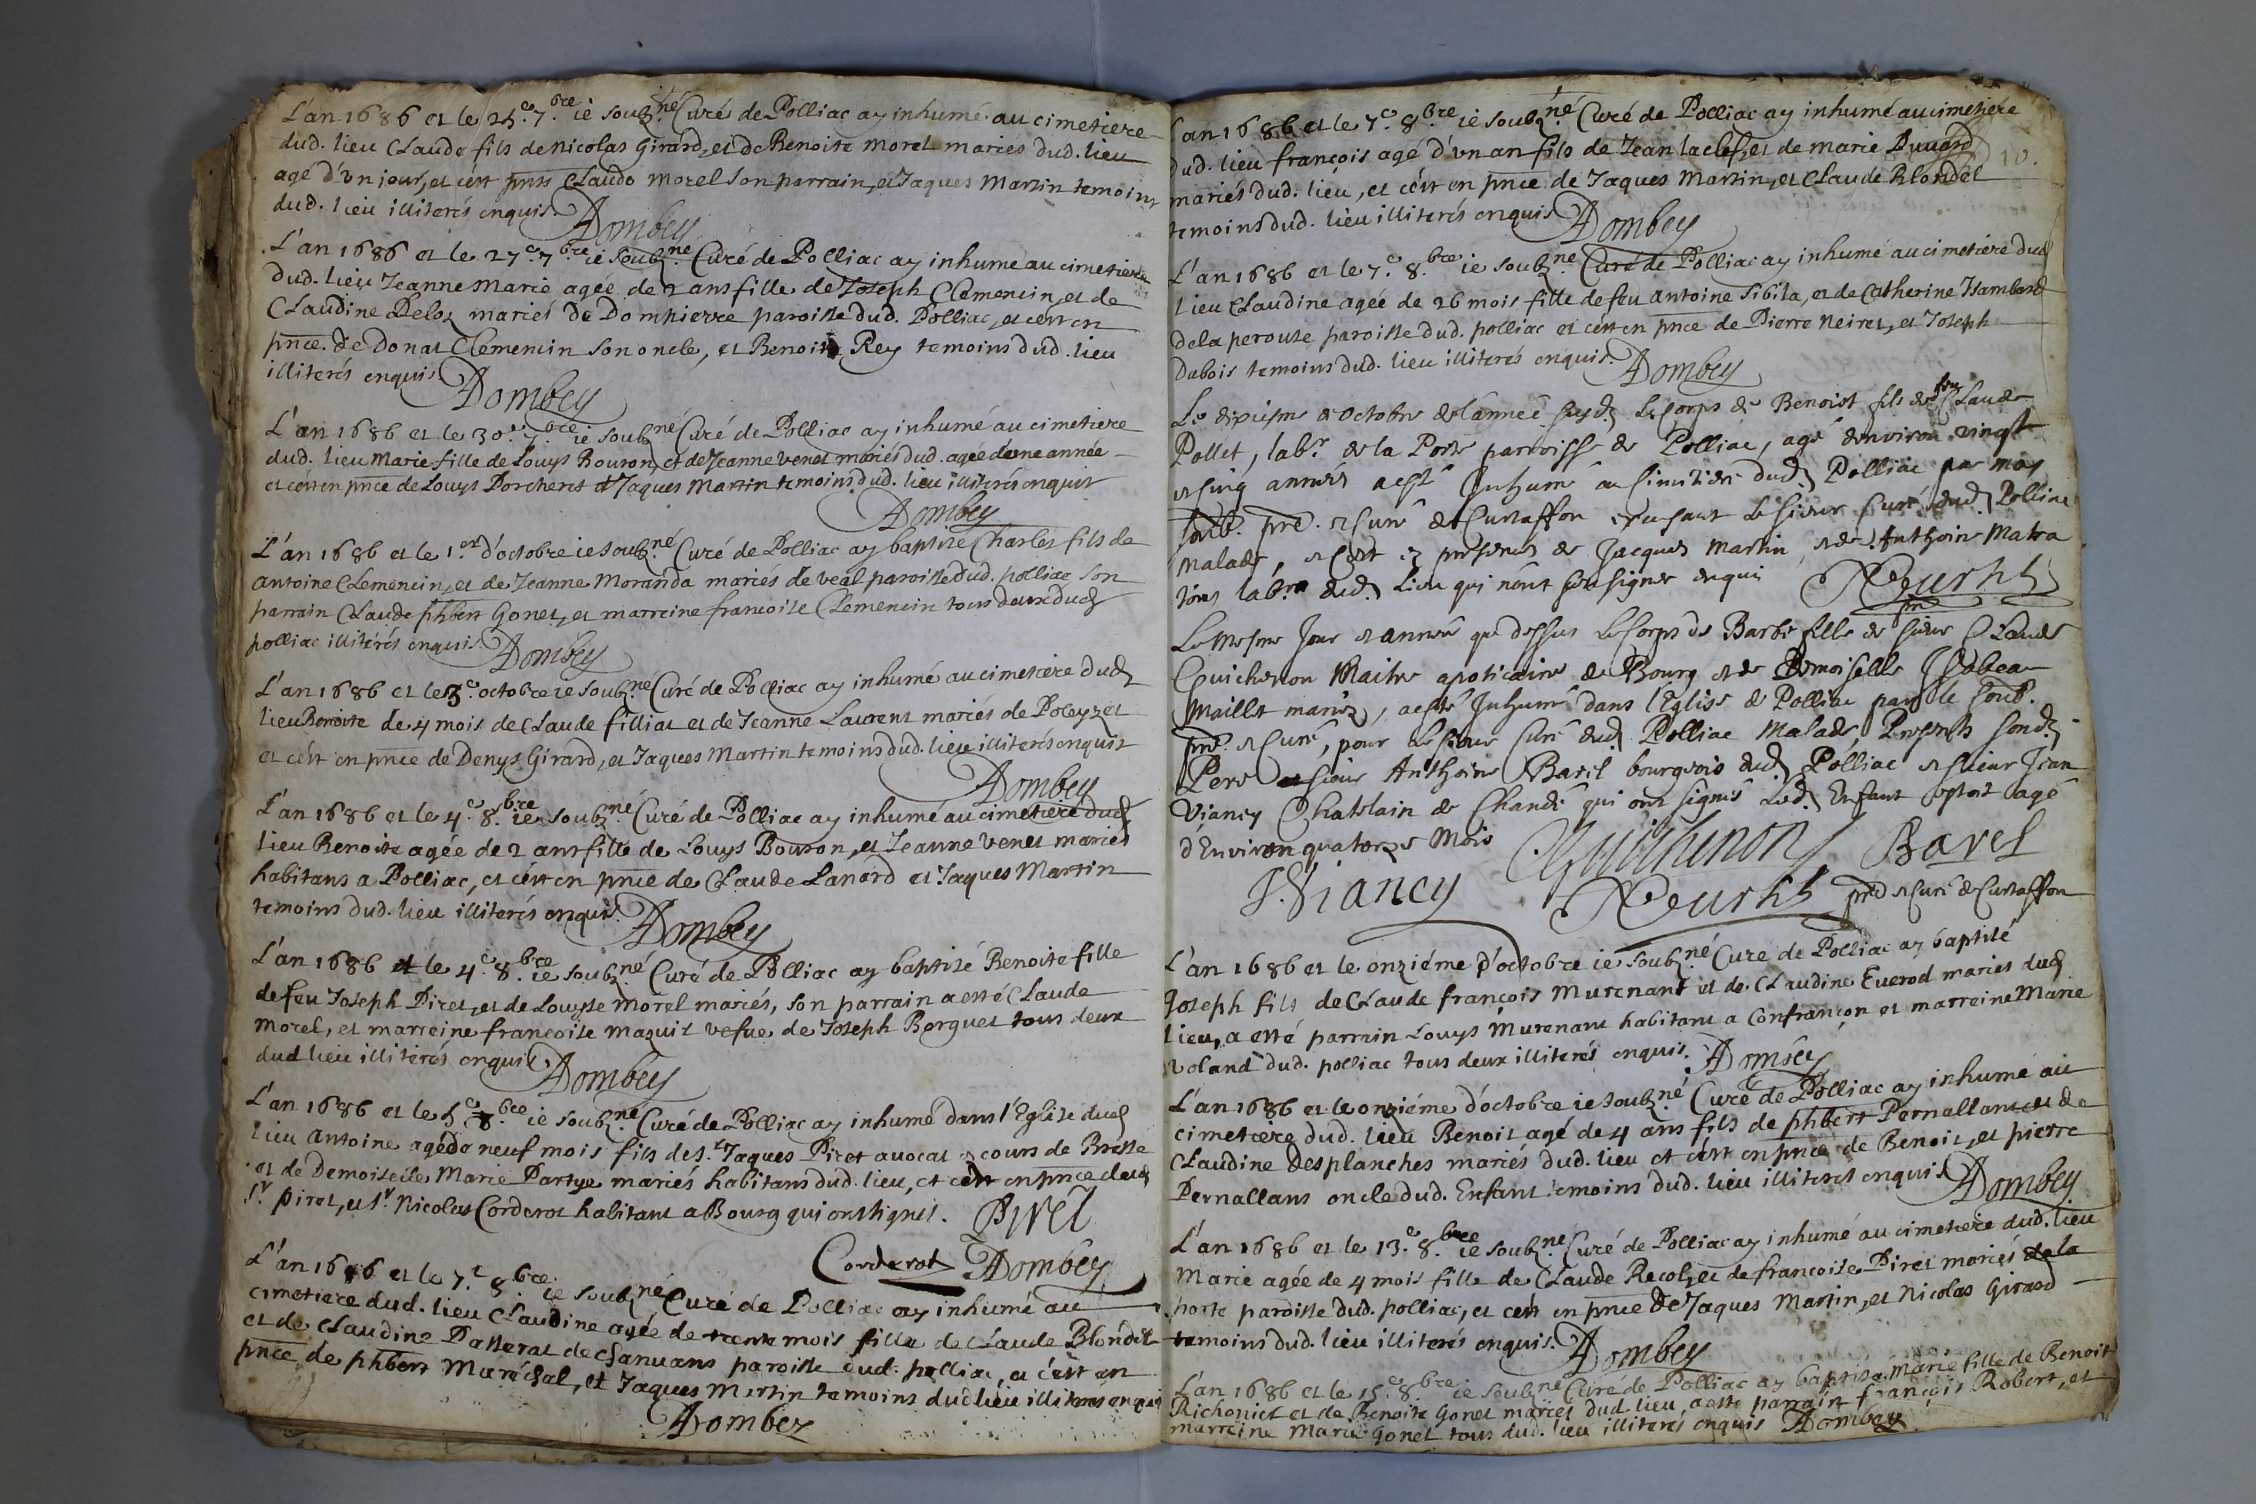 L'an 1686 et le 25.e 7.bre ie soubz.né Curé de Polliac ay inhumé au cimetiere
dud. lieu Claude fils de Nicolas Girard, et de Benoite Morel maries dud. lieu
agé d'un jour, et c'est pnts Claude Morel son parrain, et Jaques Martin temoins
dud. lieu illiterés enquis. Dombey
L'an 1686 et le 27.e 7.bre ie soubz.né Curé de Polliac ay inhumé au cimetiere
dud. lieu Jeanne Marie agée de 2 ans fille de Joseph Clemencin, et de
Claudine Beloz mariés de Dompierre paroisse dud. Polliac, et c'est en
pnce. de Donat Clemencin son oncle, et Benoit Rey temoins dud. lieu
illiterés enquis Dombey
L'an 1686 et le 30.e 7.bre ie soubz.né Curé de Polliac ay inhumé au cimetiere
dud. lieu Marie fille de Louys Bouron, et de Jeanne Venet mariés dud. agée d'une année
et c'est en pnce de Louys Porcheret et Jaques Martin temoins dud. lieu illiterés enquis
Dombey
L'an 1686 et le 1.er d'octobre ie soubz.né Curé de Polliac ay baptisé Charles fils de
Antoine Clemencin, et de Jeanne Moranda mariés de veal paroisse dud. polliac son
parrain Claude phbert Gonet, et marreine francoise Clemencin tous deux dud
polliac illiterés enquis. Dombey
L'an 1686 et le 3.e octobre ie soubz.né Curé de Polliac ay inhumé au cimetiere dud
lieu Benoite de 4 mois de Claude filliat et de Jeanne Laurent mariés de Poleyzet
et c'est en pnce de Denys Girard, et Jaques Martin temoins dud. lieu illiterés enquis
Dombey
L'an 1686 et le 4.e 8.bre ie soubz.né Curé de Polliac ay inhumé au cimetiere dud
lieu Benoite agée de 2 ans fille de Louys Bouron, et Jeanne Venet mariés
habitans a Polliac, et c'est en pnce de Claude Lanard et Jaques Martin
temoins dud. lieu illiterés enquis. Dombey
L'an 1686 et le 4.e 8.bre ie soubz.né Curé de Polliac ay baptisé Benoite fille
de feu Joseph Piret, et de Louyse Morel mariés, son parrain a esté Claude
Morel, et marreine francoise Mazuit vefue de Joseph Berguet tous deux
dud lieu illiterés enquis Dombey
L'an 1686 et le 5.e 8.bre ie soubz.né Curé de Polliac ay inhumé dans l'Eglise dud
lieu Antoine agé de neuf mois fils de s.r Jaques Piret avocat es cours de Bresse
et de Demoiselle Marie Partye mariés habitans dud. lieu, et c'est en pnce dud
s.r piret, et s.r Nicolas Corderot habitant a Bourg qui ont signés. Piret
Corderot Dombey
L'an 1686 et le 7.e 8.bre ie soubz.né Curé de Polliac ay inhumé au
cimetiere dud. lieu Claudine agée de trente mois fille de Claude Blondel
et de Claudine Passerat de Chanuans paroisse dud. polliac, et c'est en
pnce de phbert Maréchal, et Jaques Martin temoins dud lieu illiterés enquis
Dombey
L'an 1686 et le 7.e 8.bre ie soubz.né Curé de Polliac ay inhumé au cimetiere
dud. lieu françois agé d'un an fils de Jean laclef, et de marie Buuard
10.
mariés dud. lieu, et c'est en pnce de Jaques Martin, et Claude Blondel
temoins dud. lieu illiterés enquis Dombey
L'an 1686 et le 7.e 8.bre ie soubz.né Curé de Polliac ay inhumé au cimetiere dud
lieu Claudine agée de 26 mois fille de feu Antoine Sibila, et de Catherine Isambard
de la perouse paroisse dud. polliac et c'est en pnce de Pierre Neiret, et Joseph
Dubois temoins dud. lieu illiterés enquis. Dombey
Le dixiesme d'Octobre de l'année susd. le Corps de Benoist fils de feu Claude
Pollet, lab.r de la Porte parroisse de Polliac, agé denviron vingt
et cinq années a esté Inhumé au Cimitiere dud. Polliac par moy
soub. pre. et Curé de Curtaffon Pour le sieur Curé dud. Polliac
Malade, et c'est en presence de Jacques Martin et de Anthoine Matra
tous lab.rs dud. Lieu qui n'ont sceu signer enquis
pre
Le Mesme Jour et année que dessus le Corps de Barbe fille de sieur Claude
Guichenon Maitre apoticaire de Bourg et de Demoiselle Isabeau
Maillet mariez, a esté Inhumé dans l'Eglise de Polliac par le soub.
pre. et Curé, pour le sieur Curé dud. Polliac Malade, Presents sond.
Pere sieur Anthoine Bavel bourgeois dud. Polliac et sieur Jean
Vianey Chatelain de Chandé qui ont signés led. Enfant estoit agé
d'Environ quatorze Mois Guichenon Bavel
J. Vianey pre et Curé de Curtaffon
L'an 1686 et le onziéme d'octobre ie soubz.né Curé de Polliac ay baptisé
Joseph fils de Claude françois Murenant et de Claudine Euerod mariés dud
lieu, a esté parrain Louys Murenant habitant a Confrançon et marreine Marie
Voland dud. polliac tous deux illiterés enquis. Dombey
L'an 1686 et le onziéme d'octobre ie soubz.né Curé de Polliac ay inhumé au
cimetiere dud. lieu Benoit agé de 4 ans fils de phbert Pernallans et de
Claudine Desplanches mariés dud. lieu et c'est en pnce de Benoit, et pierre
Pernallans oncle dud. Enfant temoins dud. lieu illiterés enquis Dombey
L'an 1686 et le 13.e 8.bre ie soubz.né Curé de Polliac ay inhumé au cimetiere dud. lieu
Marie agée de 4 mois fille de Claude Recolz, et de francoise Piret mariés de la
porte paroisse dud. polliac, et c'est en pnce de Jaques Martin, et Nicolas Girard
temoins dud. lieu illiterés enquis. Dombey
L'an 1686 et le 15.e 8.bre ie soubz.né Curé de Polliac ay baptisé Marie fille de Benoit
Richoniet et de Benoite Gonet mariés dud lieu, a esté parrain françois Robert, et
marreine Marie Gonet tous dud. lieu illiterés enquis Dombey